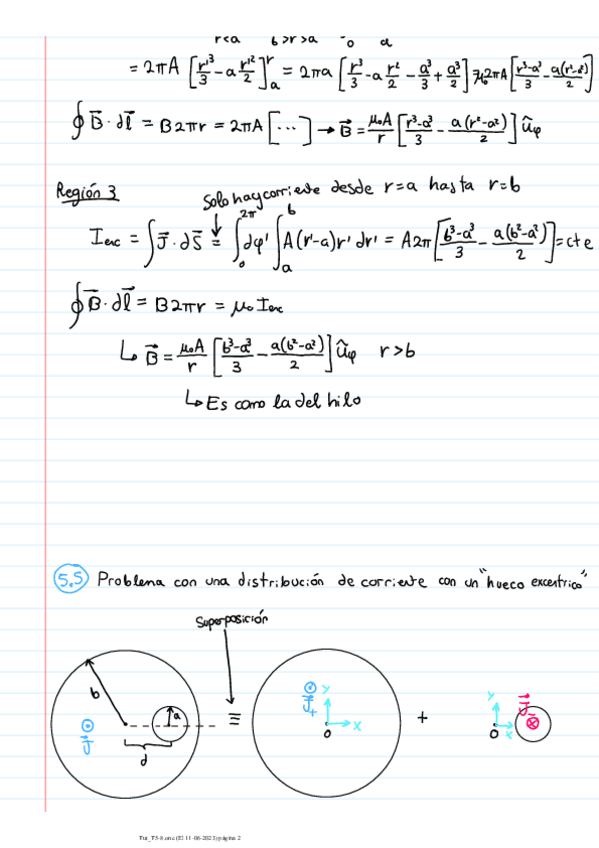 r<a b>r>a o a
= 2πA [r'³/3 - a r'²/2]ʳₐ = 2πa [r³/3 - a r²/2 - a³/3 + a³/2] 2πA [r³-a³/3 - a(r²-a²)/2]
∮ B⃗ · dl⃗ = B2πr = 2πA [···] → B⃗ = μ₀A/r [r³-a³/3 - a(r²-a²)/2] ûφ
Región 3
Solo hay corriente desde r=a hasta r=b
Ienc = ∫ J⃗ · dS⃗ = ∫₀^2π dφ' ∫ₐ^b A(r'-a)r' dr' = A2π [b³-a³/3 - a(b²-a²)/2] = cte
∮ B⃗ · dl⃗ = B2πr = μ₀ Ienc
↳ B⃗ = μ₀A/r [b³-a³/3 - a(b²-a²)/2] ûφ r>b
↳ Es como la del hilo
5.5 Problema con una distribución de corriente con un "hueco excentrico"
Superposición
b a J⃗ d ≡ J⃗₊ y x o + y x o J⃗₋
Tut_T5-8.one (E2 11-06-2023) página 2